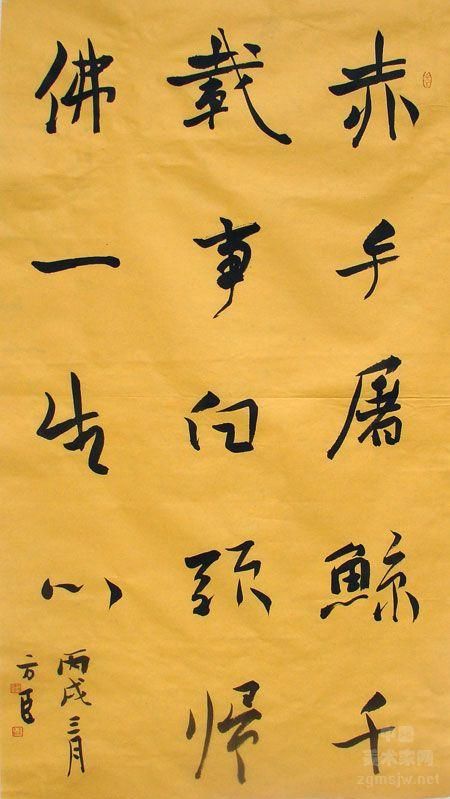 赤手屠鯨千
載事白頭歸
佛一生心
丙戌三月
方臣
中国
美术家网
zgmsjw.net